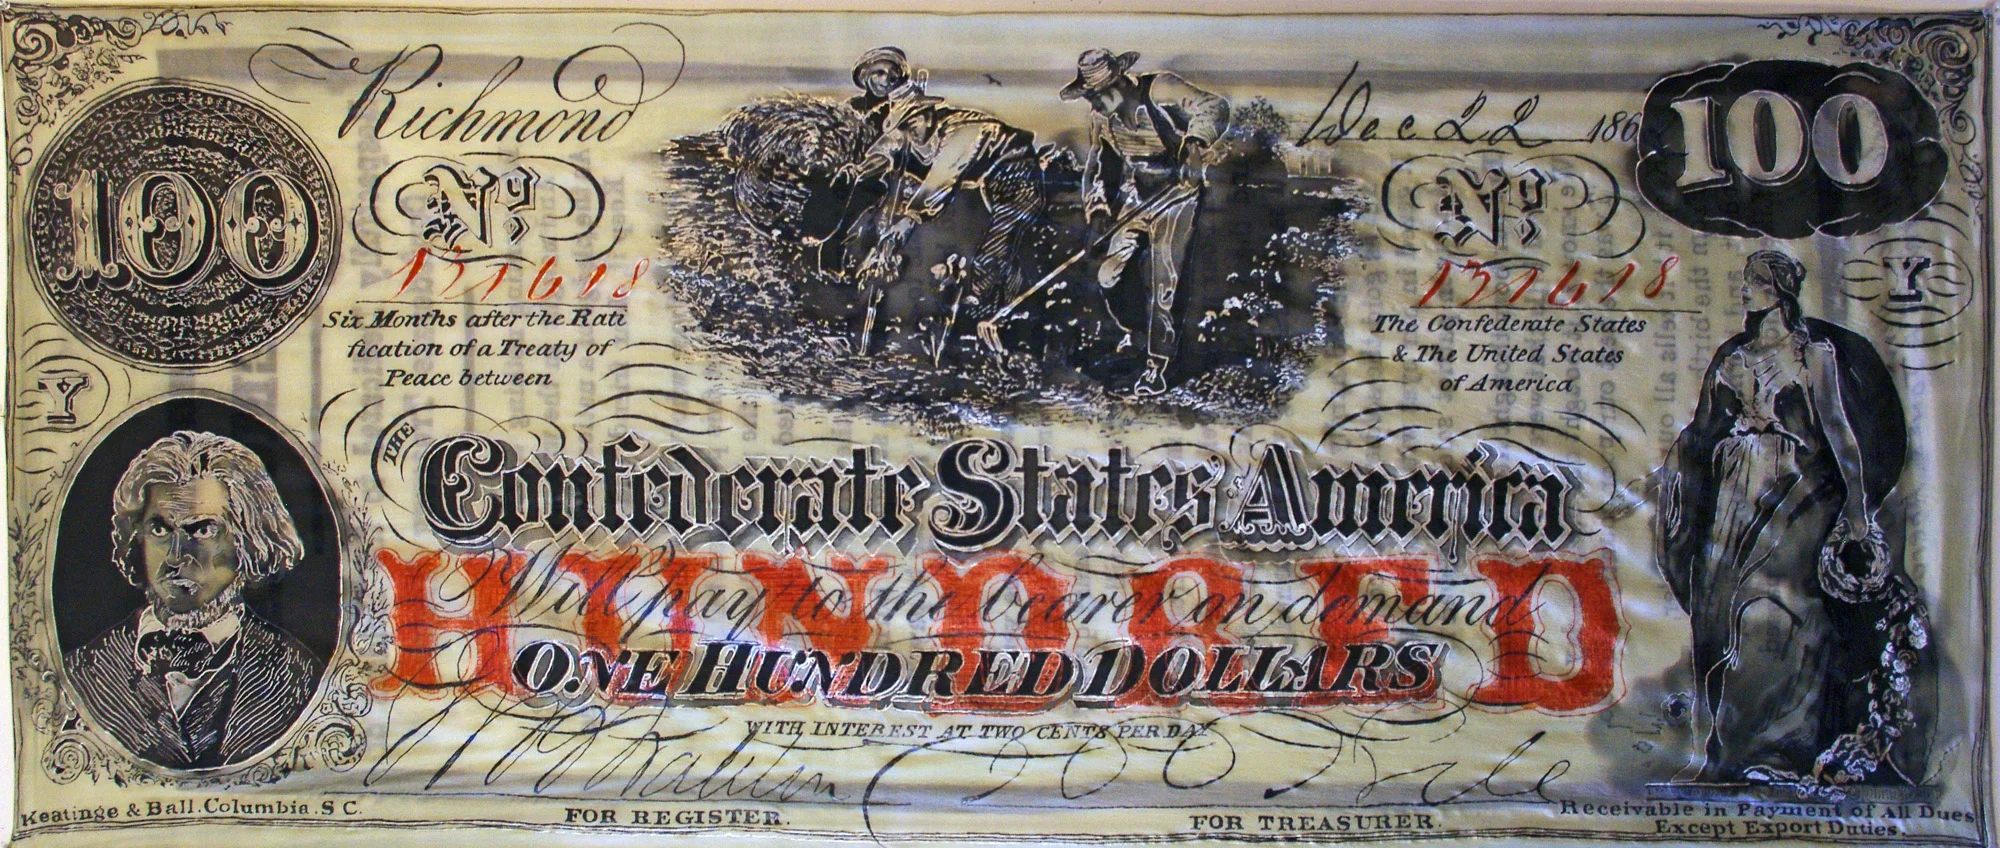 Richmond
Dec 22 186
100
100
No
No
131618
131618
Six Months after the Rati
fication of a Treaty of
Peace between
The Confederate States
& The United States
of America
Y
Y
THE
Confederate States America
HUNDRED
Will pay to the bearer on demand
ONE HUNDRED DOLLARS
WITH INTEREST AT TWO CENTS PER DAY
Keatinge & Ball. Columbia. S C.
FOR REGISTER.
FOR TREASURER.
Receivable in Payment of All Dues
Except Export Duties.